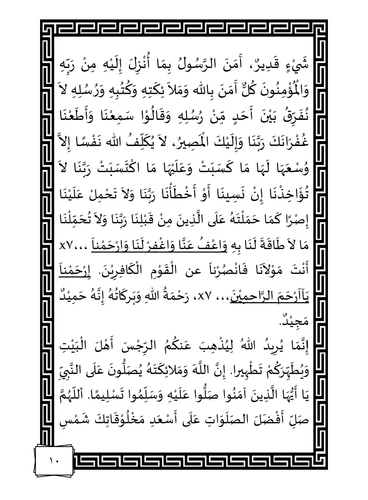 شَيْءٍ قَدِيرٌ، أَمَنَ الرَّسُولُ بِمَا أُنْزِلَ إِلَيْهِ مِنْ رَبِّهِ
وَالْمُؤْمِنُونَ كُلٌّ آمَنَ بِاللهِ وَمَلاَئِكَتِهِ وَكُتُبِهِ وَرُسُلِهِ لاَ
نُفَرِّقُ بَيْنَ أَحَدٍ مِّنْ رُسُلِهِ وَقَالُوْا سَمِعْنَا وَأَطَعْنَا
غُفْرَانَكَ رَبَّنَا وَإِلَيْكَ الْمَصِيرُ، لاَ يُكَلِّفُ الله نَفْسًا إِلاَّ
وُسْعَهَا لَهَا مَا كَسَبَتْ وَعَلَيْهَا مَا اكْتَسَبَتْ رَبَّنَا لاَ
تُؤَاخِذْنَا إِنْ نَسِينَا أَوْ أَخْطَأْنَا رَبَّنَا وَلاَ تَحْمِلْ عَلَيْنَا
إِصْرًا كَمَا حَمَلْتَهُ عَلَى الَّذِينَ مِنْ قَبْلِنَا رَبَّنَا وَلاَ تُحَمِّلْنَا
مَا لاَ طَاقَةَ لَنَا بِهِ وَاعْفُ عَنَّا وَاغْفِرْ لَنَا وَارْحَمْنَا ... x٧
أَنْتَ مَوْلاَنَا فَانْصُرْنَا عن الْقَوْمِ الْكَافِرِيْنَ. إِرْحَمْنَا
يَاأَرْحَمَ الرَّاحِمِيْنَ... x٧ ، رَحْمَةُ اللهِ وَبَرَكَاتُهُ إِنَّهُ حَمِيْدٌ
مَجِيْدٌ.
إِنَّمَا يُرِيدُ اللهُ لِيُذْهِبَ عَنكُمُ الرِّجْسَ أَهْلَ الْبَيْتِ
وَيُطَهِّرَكُمْ تَطْهِيرا. إِنَّ اللَّهَ وَمَلائِكَتَهُ يُصَلُّونَ عَلَى النَّبِيِّ
يَا أَيُّهَا الَّذِينَ آمَنُوا صَلُّوا عَلَيْهِ وَسَلِّمُوا تَسْلِيمًا. اَللّهُمَّ
صَلِّ أَفْضَلَ الصَلَوَاتِ عَلَى أَسْعَدِ مَخْلُوْقَاتِكَ شَمْسِ
١٠